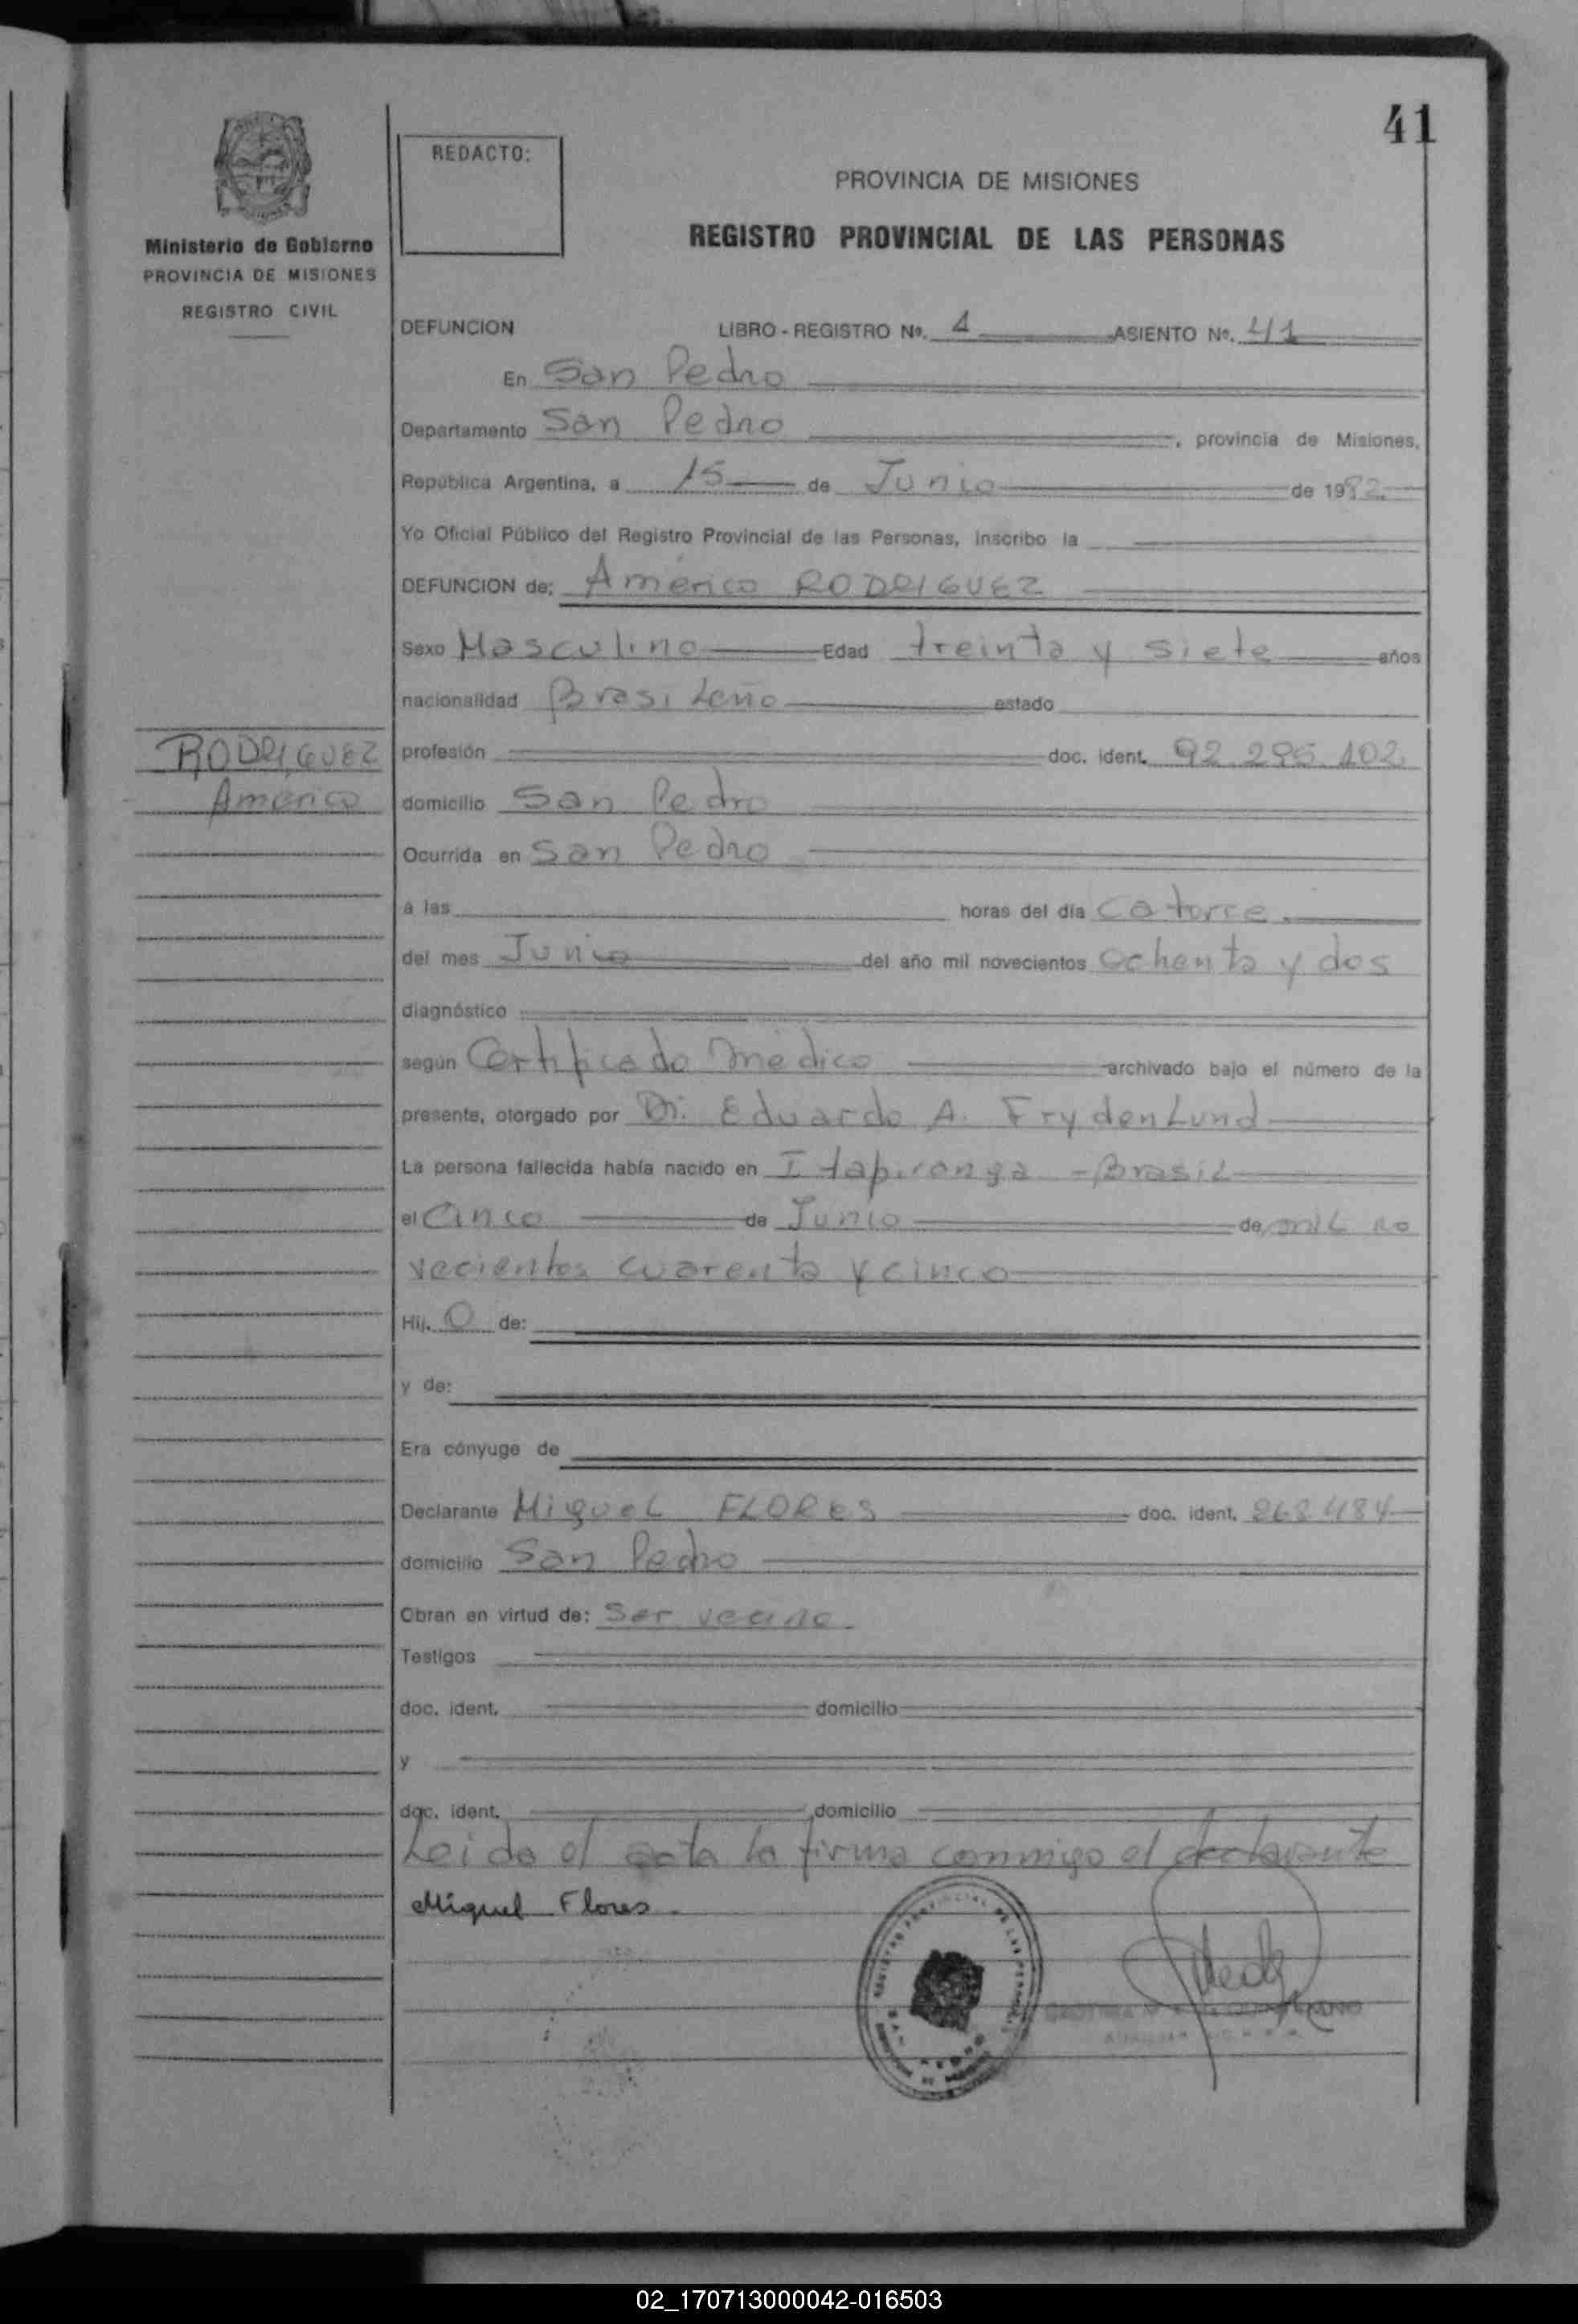 41
REDACTO:
PROVINCIA DE MISIONES
REGISTRO PROVINCIAL DE LAS PERSONAS
Ministerio de Gobierno
PROVINCIA DE MISIONES
REGISTRO CIVIL
DEFUNCION LIBRO - REGISTRO Nº. 1 ASIENTO Nº. 41
En San Pedro
Departamento San Pedro, provincia de Misiones,
República Argentina, a 15 de Junio de 1982
Yo Oficial Público del Registro Provincial de las Personas, inscribo la
DEFUNCION de: Américo RODRIGUEZ
Sexo Masculino Edad treinta y siete años
nacionalidad Brasileño estado
RODRIGUEZ
Américo
profesión doc. ident. 92.295.102
domicilio San Pedro
Ocurrida en San Pedro
a las horas del día catorce
del mes Junio del año mil novecientos ochenta y dos
diagnóstico
según Certificado médico archivado bajo el número de la
presente, otorgado por Dr. Eduardo A. FrydenLund
La persona fallecida había nacido en Itapiranga - Brasil
el Cinco de Junio de mil no
vecientos cuarenta y cinco
Hij. O de:
y de:
Era cónyuge de
Declarante Miguel FLORES doc. ident. 268.484
domicilio San Pedro
Obran en virtud de: Ser vecino
Testigos
doc. ident. domicilio
y
doc. ident. domicilio
Leida el acta la firma conmigo el declarante
Miguel Flores
02_170713000042-016503